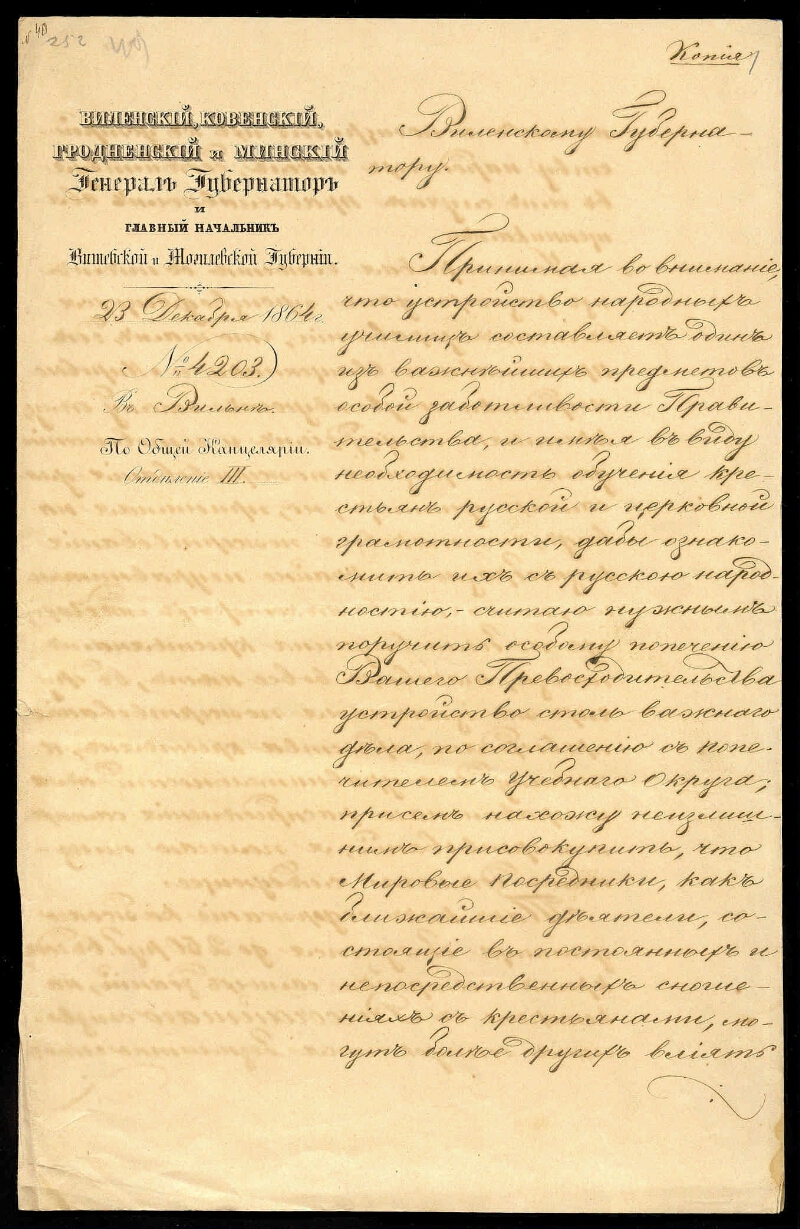 252
Копія
ВИЛЕНСКІЙ, КОВЕНСКІЙ,
ГРОДНЕНСКІЙ и МИНСКІЙ
Генералъ Губернаторъ
и
ГЛАВНЫЙ НАЧАЛЬНИКЪ
Витебской и Могилевской Губерніи.
23 Декабря 1864 г.
№ 4203.
Въ Вильнѣ.
По Общей Канцеляріи.
Отдѣленіе III.
Виленскому Губерна-
тору.
Принимая во вниманіе,
что устройство народныхъ
училищъ составляетъ одинъ
изъ важнѣйшихъ предметовъ
особой заботливости Прави-
тельства, и имѣя въ виду
необходимость обученія кре-
стьянъ русской и церковной
грамотности, дабы ознако-
мить ихъ съ русскою народ-
ностію,- считаю нужнымъ
поручить особому попеченію
Вашего Превосходительства
устройство столь важнаго
дѣла, по соглашенію съ попе-
чителемъ Учебнаго Округа;
присемъ нахожу неизлиш-
нимъ присовокупить, что
Мировые посредники, какъ
ближайшіе дѣятели, со-
стоящіе въ постоянныхъ и
непосредственныхъ сноше-
ніяхъ съ крестьянами, мо-
гутъ болѣе другихъ вліять